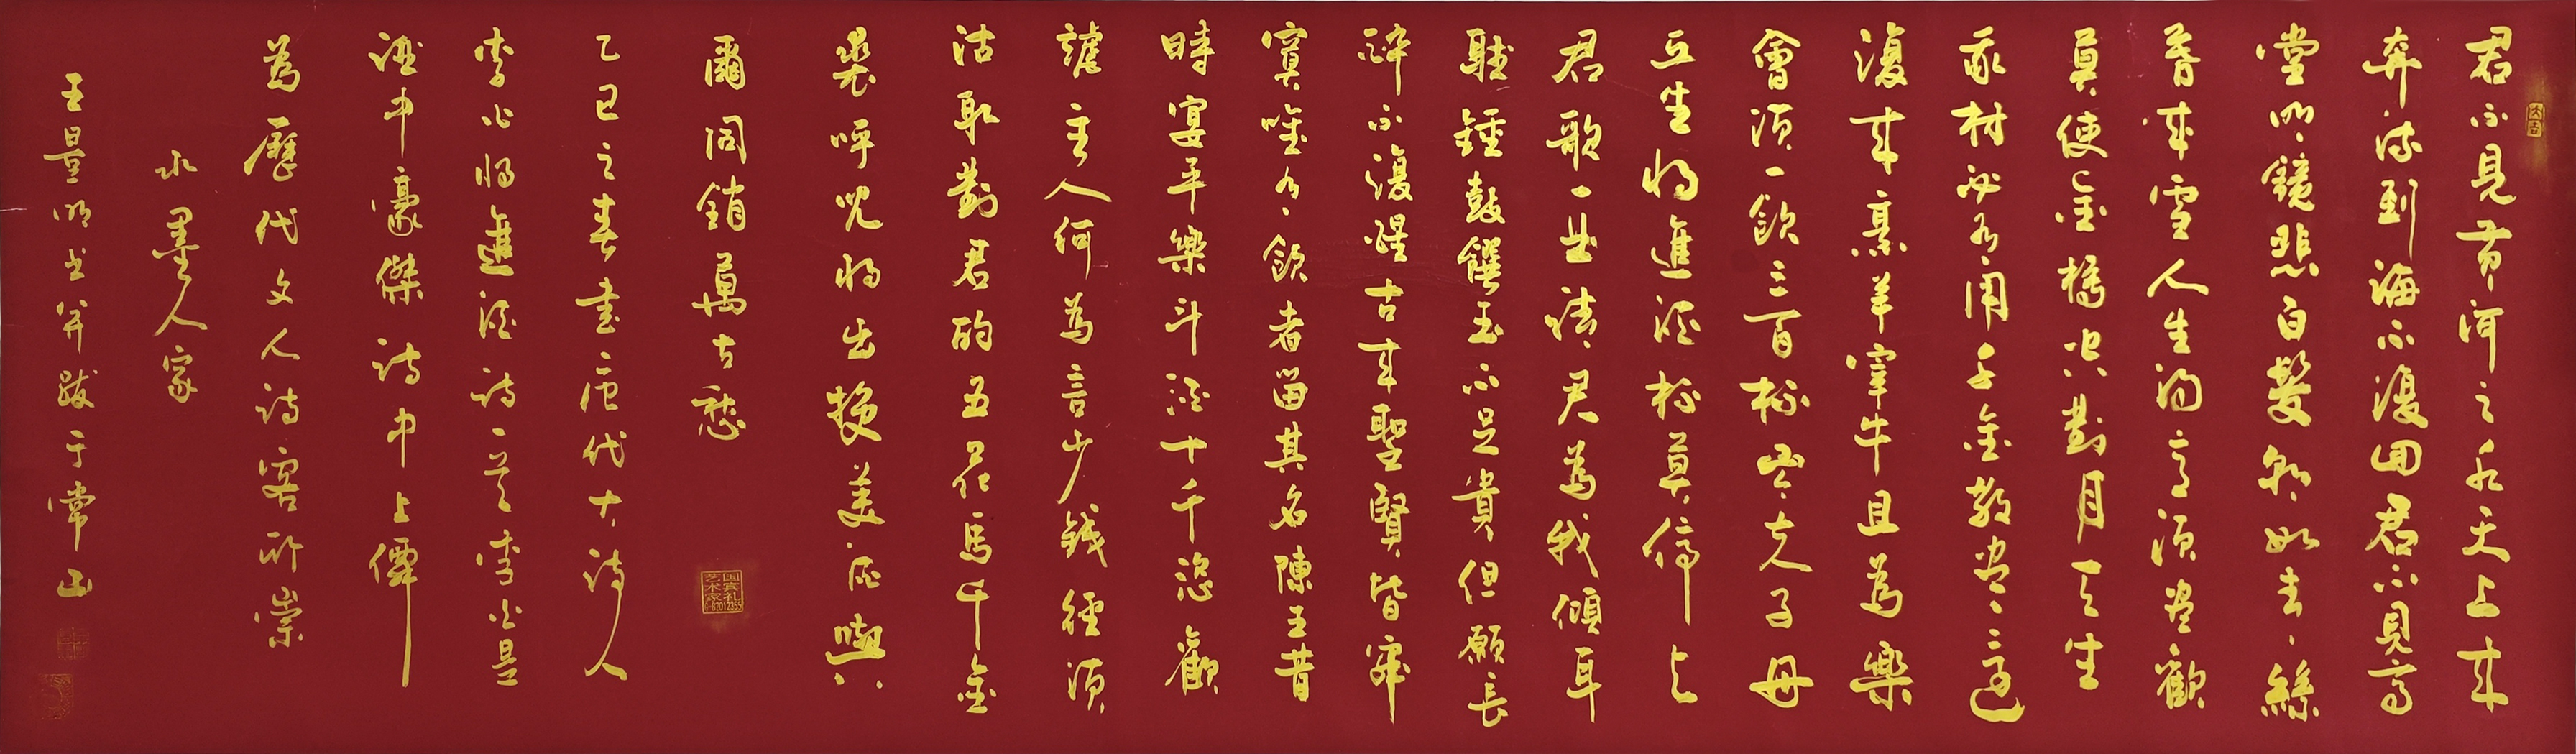 君不見黃河之水天上來
奔流到海不復回君不見高
堂明鏡悲白髮朝如青絲
暮成雪人生得意須盡歡
莫使金樽空對月天生
我材必有用千金散盡還
復來烹羊宰牛且為樂
會須一飲三百杯岑夫子丹
丘生將進酒杯莫停與
君歌一曲請君為我傾耳
聽鐘鼓饌玉不足貴但願長
醉不復醒古來聖賢皆寂
寞唯有飲者留其名陳王昔
時宴平樂斗酒十千恣歡
謔主人何為言少錢徑須
沽取對君酌五花馬千金
裘呼兒將出換美酒與
爾同銷萬古愁
国宾礼
艺术家
乙巳之春書唐代大詩人
李白將進酒詩一首李白是
酒中豪傑詩中上僊
為歷代文人詩客所崇
水墨人家
王景明书并跋于常山